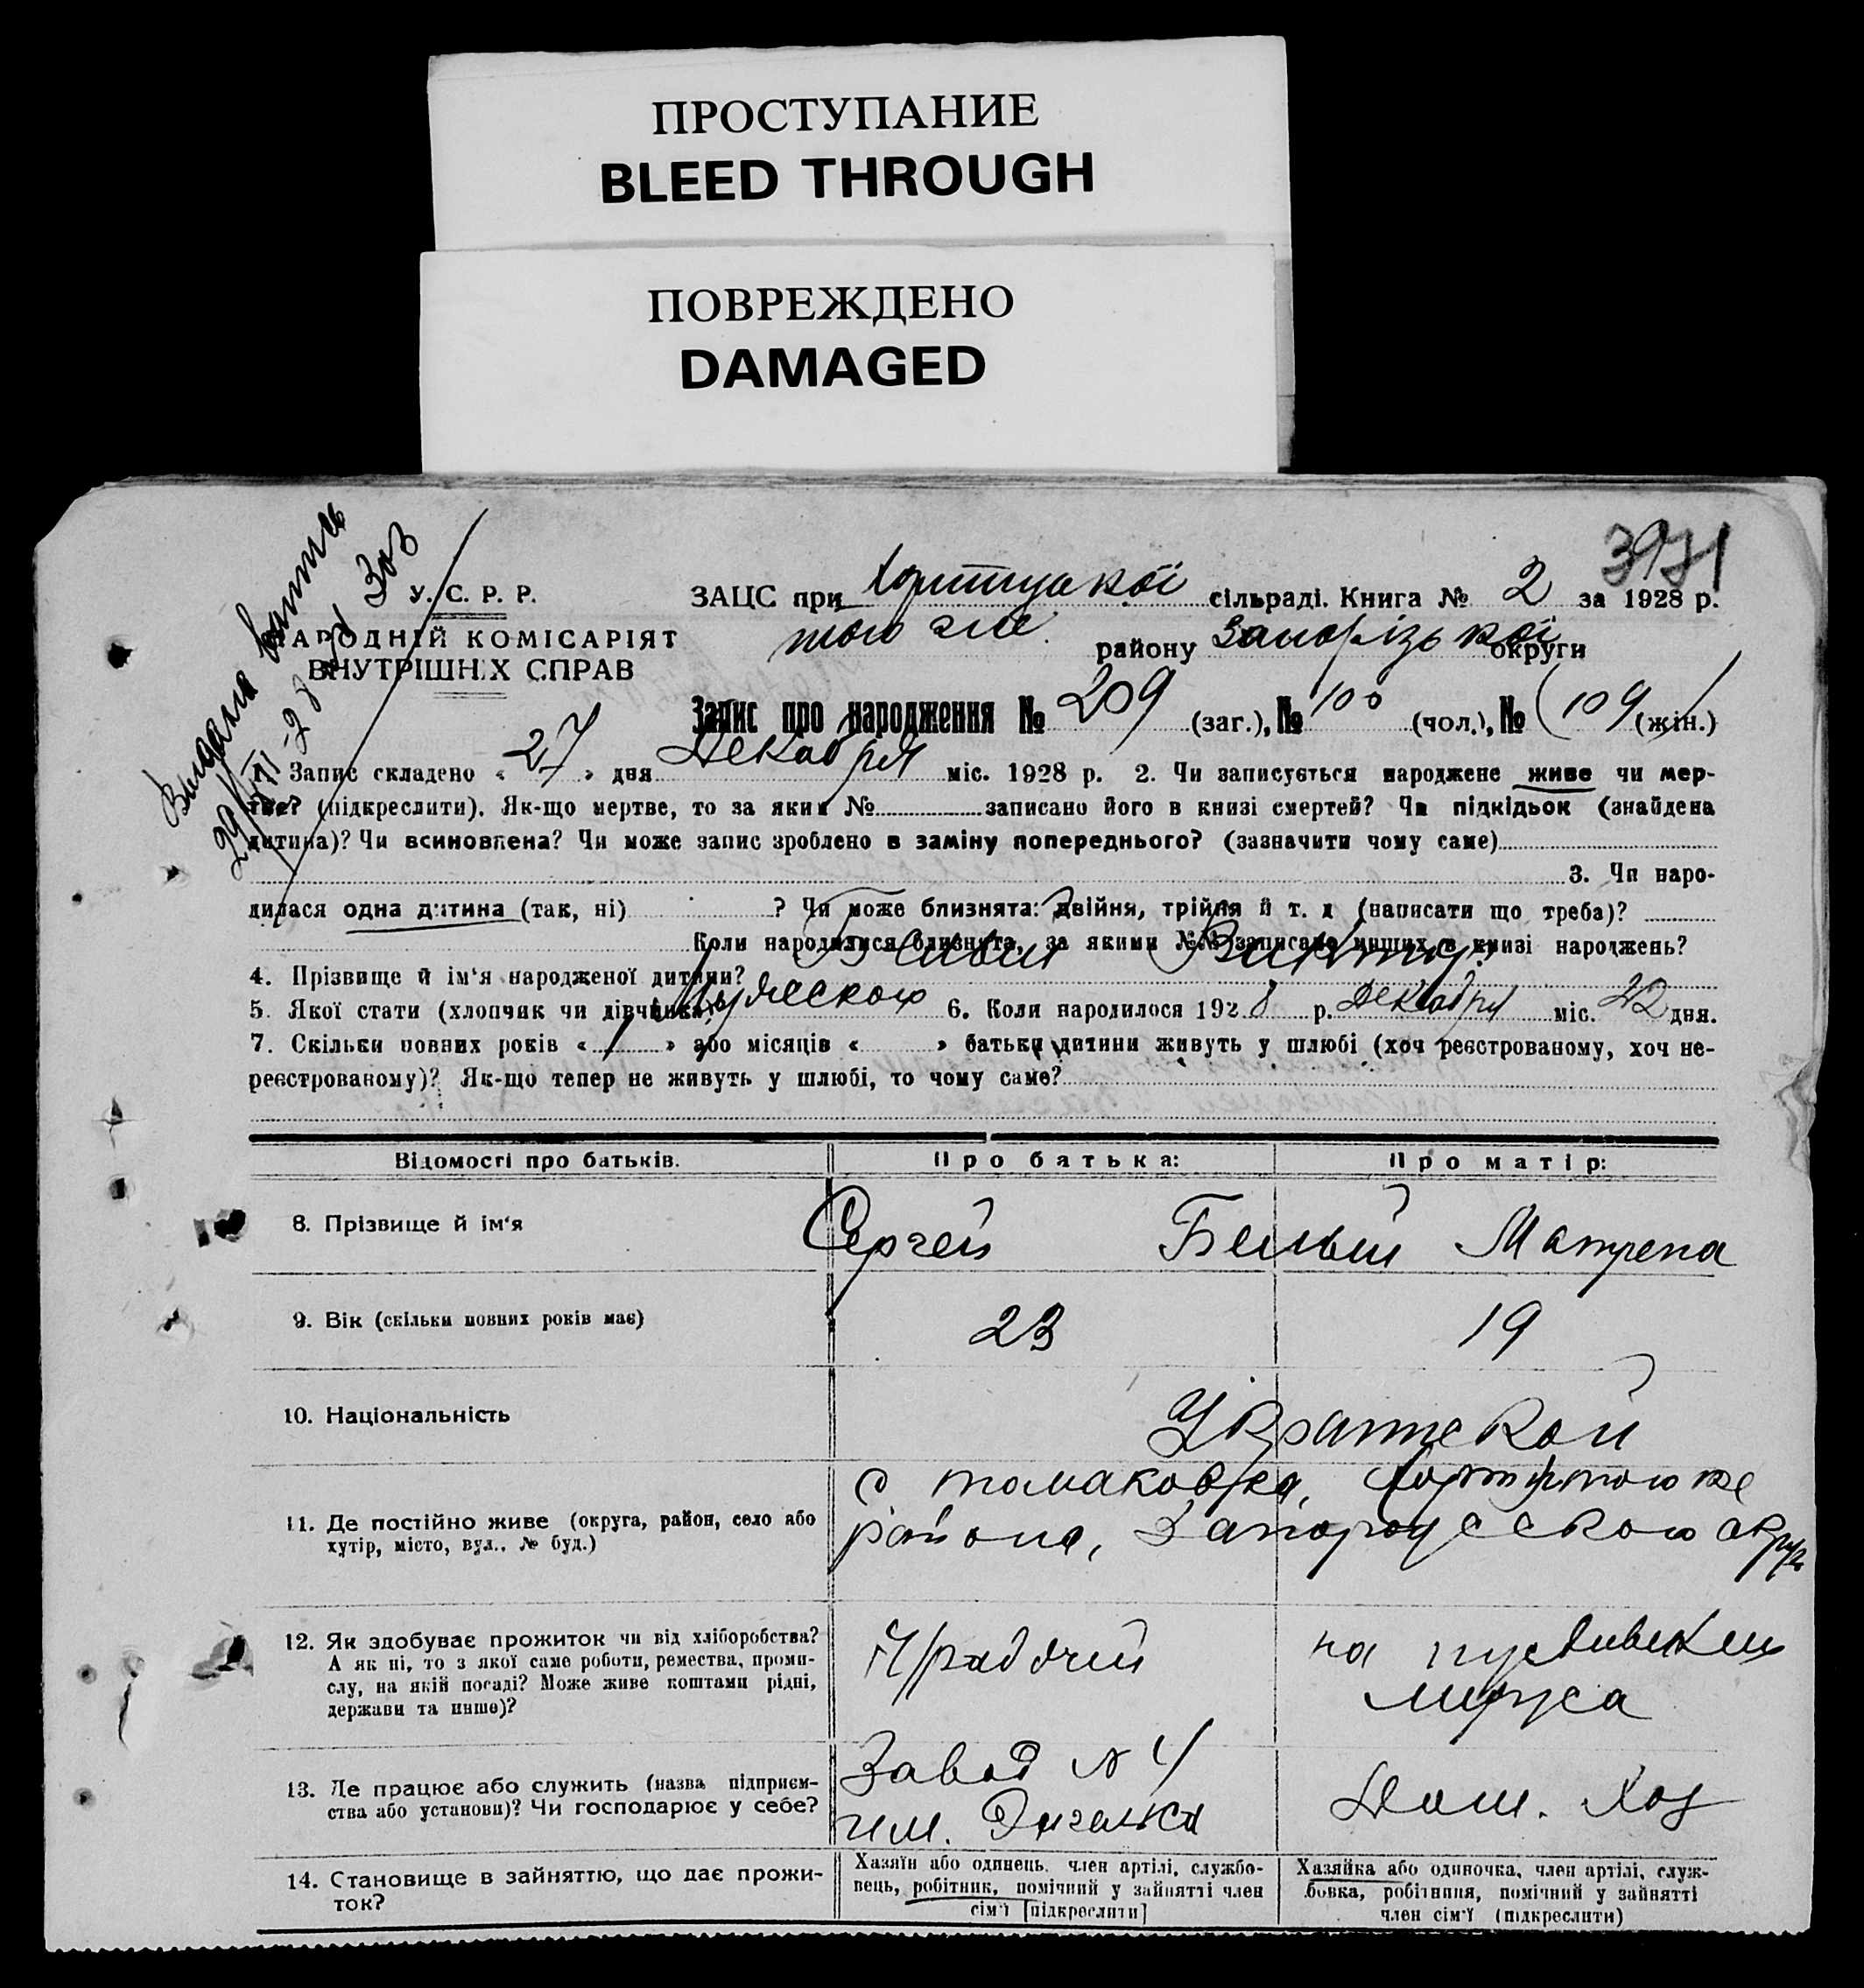 ПРОСТУПАНИЕ
BLEED THROUGH
ПОВРЕЖДЕНО
DAMAGED
3971
У. С. Р. Р.
НАРОДНІЙ КОМІСАРІЯТ
ВНУТРІШНІХ СПРАВ
29/XII-28
ЗАЦС при Хортицької сільраді. Книга № 2 за 1928 р.
того же району Запорізької округи
Запис про народження № 209 (заг.), № 100 (чол.), № (109 (жін.)
1. Запис складено « 27 » дня Декабря міс. 1928 р. 2. Чи записується народжене живе чи мер-
тве? (підкреслити). Як-що мертве, то за яким № записано його в книзі смертей? Чи підкідьок (знайдена
дитина)? Чи всиновлена? Чи може запис зроблено в заміну попереднього? (зазначити чому саме)
3. Чи наро-
дилася одна дитина (так, ні) ? Чи може близнята: двійня, трійня й т. д (написати що треба)?
Коли народилися близнята, за якими №№ записано инших в книзі народжень?
4. Прізвище й ім‘я народженої дитини? Белый Виктор
5. Якої стати (хлопчик чи дівчинка)? Мужескою 6. Коли народилося 1928 р. Декабря міс. 22 дня.
7. Скільки повних років « 1 » або місяців « » батьки дитини живуть у шлюбі (хоч реєстрованому, хоч не-
реєстрованому)? Як-що тепер не живуть у шлюбі, то чому саме?
Відомості про батьків. Про батька: Про матір:
8. Прізвище й ім‘я Сергей Белый Матрена
9. Вік (скільки повних років має) 23 19
10. Національність
11. Де постійно живе (округа, район, село або
хутір, місто, вул., № буд.)
с томаковка,
района,
12. Як здобуває прожиток чи від хліборобства?
А як ні, то з якої саме роботи, ремества, проми-
слу, на якій посаді? Може живе коштами рідні,
держави та инше)?
Ч/рабочий
на иждивении
мужа
13. Де працює або служить (назва підприєм-
ства або установи)? Чи господарює у себе?
Завод № 4
им. Энгельса
Дом. Хоз
14. Становище в зайняттю, що дає прожи-
ток?
Хазяїн або одинець, член артілі, службо-
вець, робітник, помічний у зайнятті член
сім‘ї [підкреслити]
Хазяйка або одиночка, член артілі, служ-
бовка, робітниця, помічний у зайнятті
член сім‘ї (підкреслити)